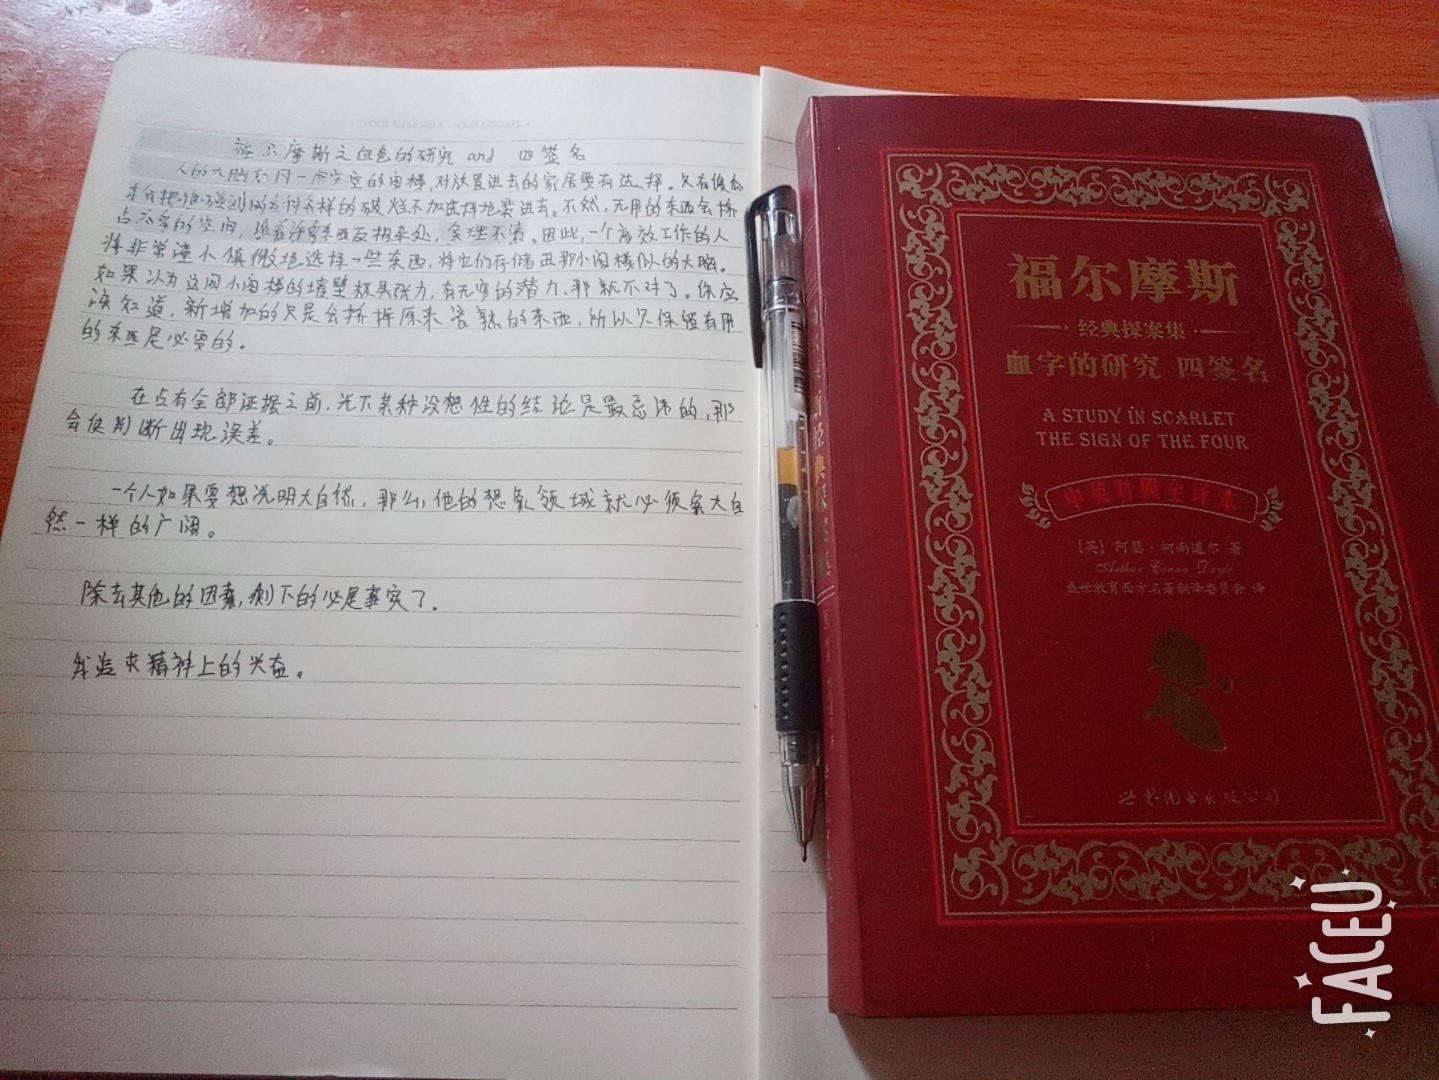 福尔摩斯之血色的研究 and 四签名
人的大脑在同一所空空的阁楼,对放置进去的家居要有选择。只有傻瓜
才会把他碰到的各种各样的破烂不加选择地装进去。不然,无用的东西会挤
占不多的空间,或者许多东西互相杂处,条理不清。因此,一个高效工作的人
将非常谨小慎微地选择一些东西,将它们存储进那小阁楼似的大脑。
如果以为这间小阁楼的墙壁极具张力,有无穷的潜力,那就不对了。你应
该知道,新增加的只是会挤掉原来熟的东西,所以只保留有用
的东西是必要的。
在占有全部证据之前,先下某种设想性的结论是最忌讳的,那
会使判断出现误差。
一个人如果要想说明大自然,那么,他的想象领域就必须象大自
然一样的广阔。
除去其他的因素,剩下的必是事实了。
我追求精神上的兴奋。
福尔摩斯
经典探案集
血字的研究 四签名
A STUDY IN SCARLET
THE SIGN OF THE FOUR
中英对照全译本
[英] 阿瑟·柯南道尔 著
Arthur Conan Doyle
盛世教育西方名著翻译委员会 译
世界图书出版公司
FACEU